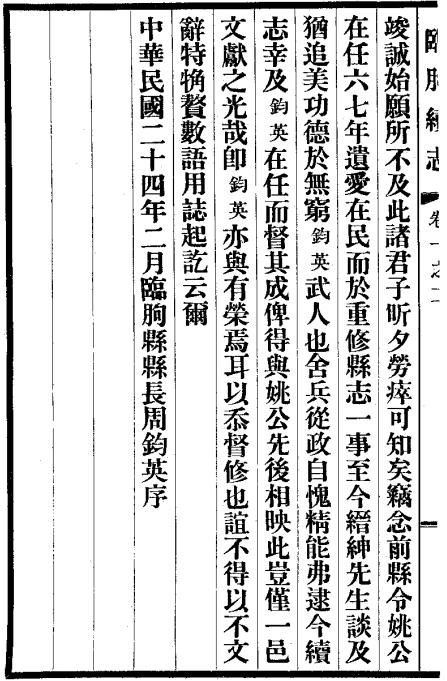 臨朐續志 卷一之二
竣誠始願所不及此諸君子昕夕勞瘁可知矣竊念前縣令姚公
在任六七年遺愛在民而於重修縣志一事至今縉紳先生談及
猶追美功德於無窮鈞英武人也舍兵從政自愧精能弗逮今續
志幸及鈞英在任而督其成俾得與姚公先後相映此豈僅一邑
文獻之光哉卽鈞英亦與有榮焉耳以忝督修也誼不得以不文
辭特觕贅數語用誌起訖云爾
中華民國二十四年二月臨朐縣縣長周鈞英序